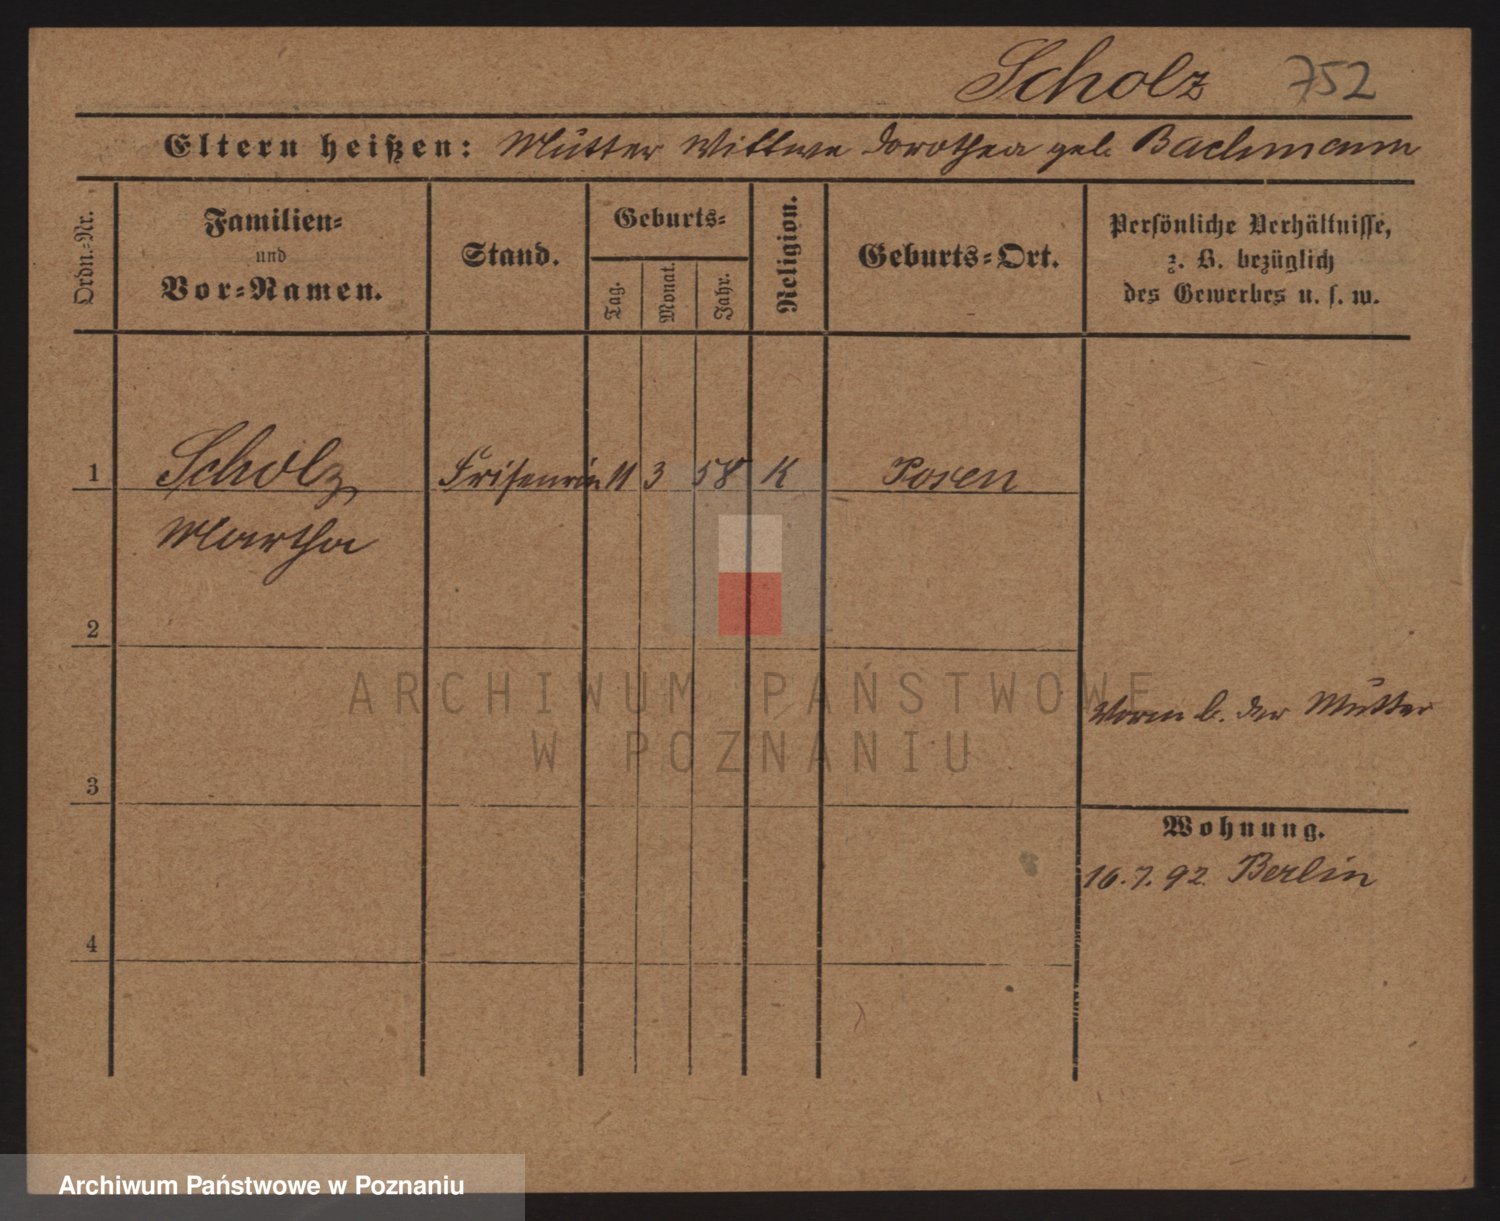 Scholz 752
Eltern heißen: Mutter Wittwe Dorothea geb. Bachmann
Ordn.-Nr.
Familien-
und
Vor-Namen.
Stand.
Geburts-
Tag.
Monat.
Jahr.
Religion.
Geburts-Ort.
Persönliche Verhältnisse,
z. B. bezüglich
des Gewerbes u. s. w.
1 Scholz, 11 3 58 K Posen
Martha
2
ARCHIWUM PAŃSTWOWE
W POZNANIU
b. der Mutter
3
Wohnung.
16.7.92 Berlin
4
Archiwum Państwowe w Poznaniu